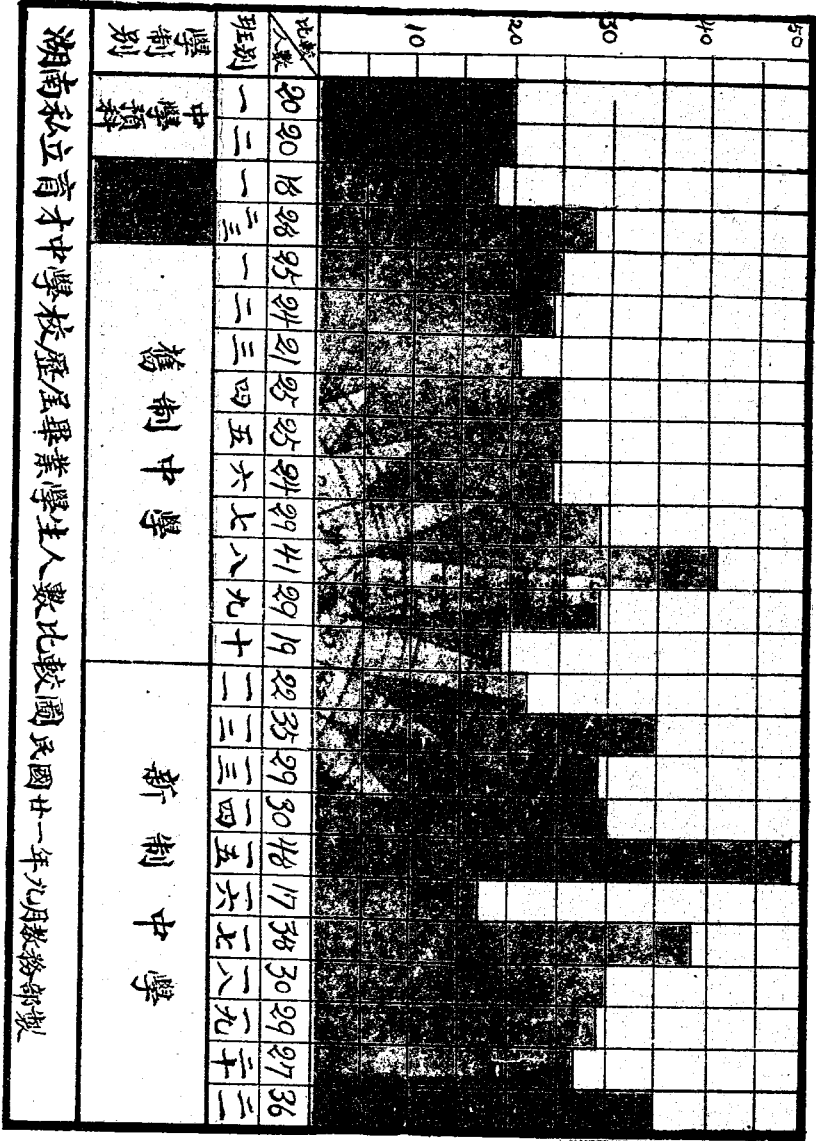 50
40
30
20
10
比較
人數
20 20 18 28 25 24 21 25 25 24 29 41 29 19 22 35 29 30 48 17 38 30 29 27 36
班別
一 二 一 二三 一 二 三 四 五 六 七 八 九 十 一一 一二 一三 一四 一五 一六 一七 一八 一九 二十 二一
學制別
中學預科
舊制中學
新制中學
湖南私立育才中學校歷屆畢業學生人數比較圖 民國廿一年九月教務部製